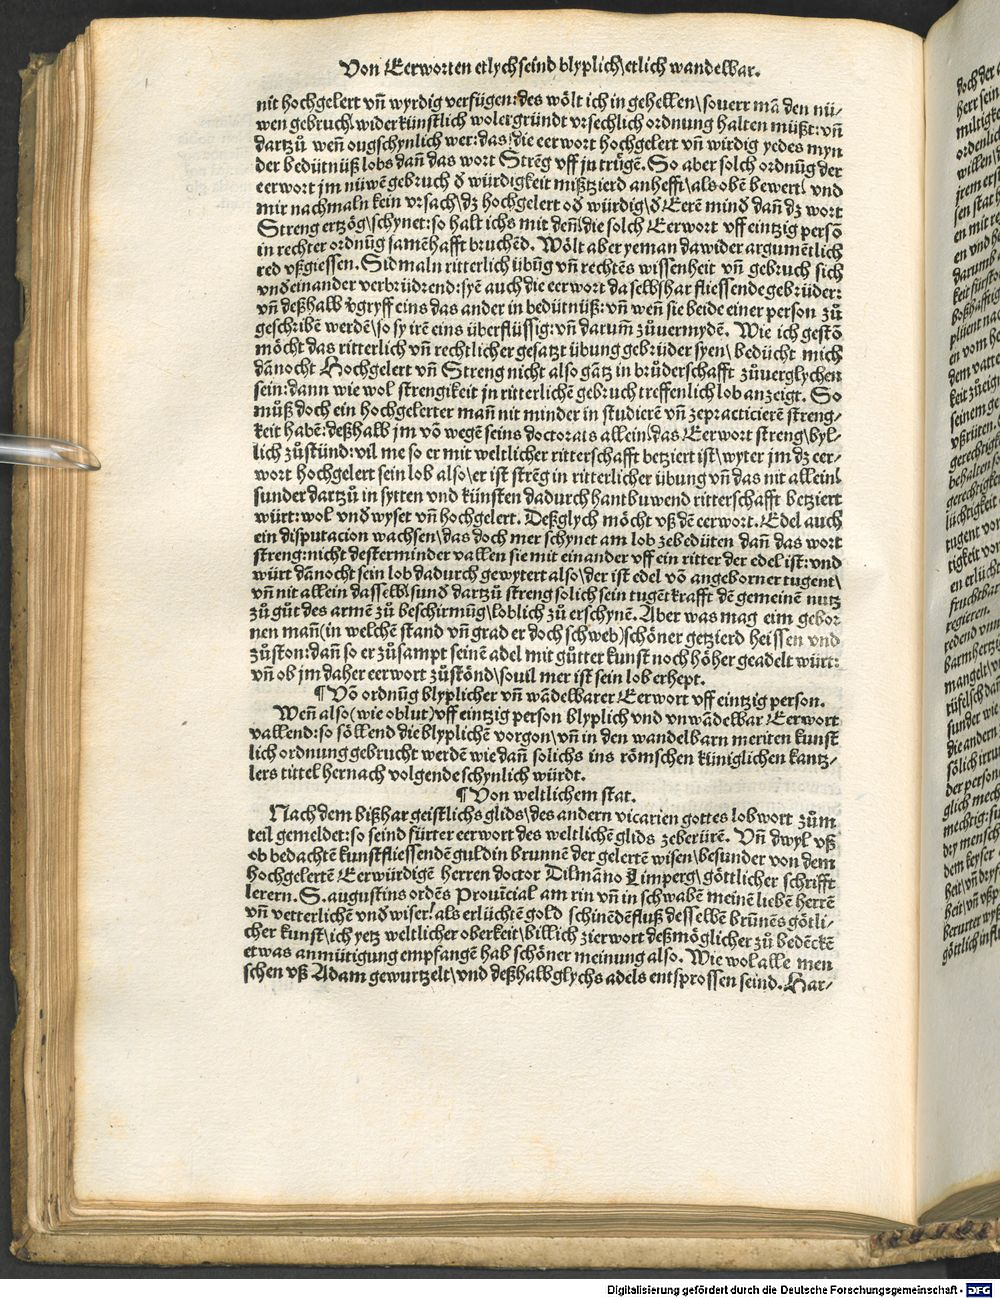 Von Eerworten etlych seind blyplich\ etlich wandelbar.
nit hochgelert vñ wyrdig verfügen: des wölt ich in gehellen/ souerr mā den nü⸗
wen gebruch\ wider künstlich wolergründt vrsechlich ordnung halten müßt: vñ
dartzů weñ ougschynlich wer: das\ die eerwort hochgelert vñ wirdig yedes myn
der bedütnüß lobs dañ das wort Strēg vff jn trügē. So aber solch ordnūg der
eerwort jm nüwē gebruch ð würdigkeit mißtzierd anhefft\ als obē bewert\ vnd
mir nachmaln kein vrsach\ dz hochgelert oð würdig\ ð Eerē minð dañ dz wort
Streng ertzög\ schynet: so halt ichs mit deñ\ die solch Eerwort vff eintzig persō
in rechter ordnūg samēhafft bruchēd. Wölt aber yeman dawider argumētlich
red vßgiessen. Sidmaln ritterlich übūg vñ rechtēs wissenheit vñ gebruch sich
vnðeinander verbrüdrend: syē auch die eerwort daselbs har fliessende gebrüder:
vñ deßhalb v̄gryff eins das ander in bedütnüß: vñ weñ sie beide einer person zů
geschribē werdē\ so sy irē eins überflüssig: vñ darum̄ zůuermydē. Wie ich gestō
möcht das ritterlich vñ rechtlicher gesatzt übung gebrüder syen\ bedücht mich
dānocht Hochgelert vñ Streng nicht also gātz in brůderschafft zůuerglychen
sein: dann wie wol strengikeit jn ritterlichē gebruch treffenlich lob anzeigt. So
můß doch ein hochgelerter mañ nit minder in studierē vñ zepracticierē streng⸗
keit habē: deßhalb jm vō wegē seins doctorats allein\ das Eerwort streng\ byl⸗
lich zůstünd: vil me so er mit weltlicher ritterschafft betziert ist\ wyter jm dz eer⸗
wort hochgelert sein lob also\ er ist strēg in ritterlicher übung vñ das nit allein\
sunder dartzů in sytten vnd künsten dadurch hantbuwend ritterschafft betziert
würt: wol vnð wyset vñ hochgelert. Deßglych möcht vß dē eerwort. Edel auch
ein disputacion wachsen\ das doch mer schynet am lob zebedüten dañ das wort
streng: nicht desterminder vallen sie mit einander vff ein ritter der edel ist: vnd
würt dānocht sein lob dadurch gewytert also\ der ist edel vō angeborner tugent\
vñ nit allein dasselb\ sunð dartzů streng solich sein tugēt krafft dē gemeinē nutz
zů gůt des armē zů beschirmūg\ loblich zů erschynē. Aber was mag eim gebor
nen mañ (in welchē stand vñ grad er doch schweb) schöner getzierd heissen vnd
zůston: dañ so er zůsampt seinē adel mit gůtter kunst noch höher geadelt würt:
vñ ob jm daher eerwort zůstönd\ souil mer ist sein lob erhept.
¶ Vō ordnūg blyplicher vñ wādelbarer Eerwort vff eintzig person.
Weñ also (wie oblut) vff eintzig person blyplich vnd vnwādelbar Eerwort
vallend: so söllend die blyplichē vorgon\ vñ in den wandelbarn meriten kunst
lich ordnung gebrucht werdē wie dañ solichs ins römschen küniglichen kantz⸗
lers tittel hernach volgende schynlich würdt.
¶ Von weltlichem stat.
Nach dem bißhar geistlichs glids\ des andern vicarien gottes lobwort zům
teil gemeldet: so seind fürter eerwort des weltlichē glids zeberürē. Vñ dwyl vß
ob bedachtē kunstfliessendē guldin brunnē der gelertē wisen\ besunder von dem
hochgelertē Eerwürdigē herren doctor Dilmāno Limperg\ göttlicher schrifft
lerern. S. augustins ordēs Prouīcial am rin vñ in schwabē meinē liebē herrē
vñ vetterlichē vnðwiser\ als erlüchtē gold schinēdē fluß desselbē brūnēs götli⸗
cher kunst\ ich yetz weltlicher oberkeit\ billich zierwort deßmöglicher zů bedēckē
etwas anmütigung empfangē hab schöner meinung also. Wie wol alle men
schen vß Adam gewurtzelt\ vnd deßhalb glychs adels entsprossen seind. Har⸗
Digitalisierung gefördert durch die Deutsche Forschungsgemeinschaft - DFG